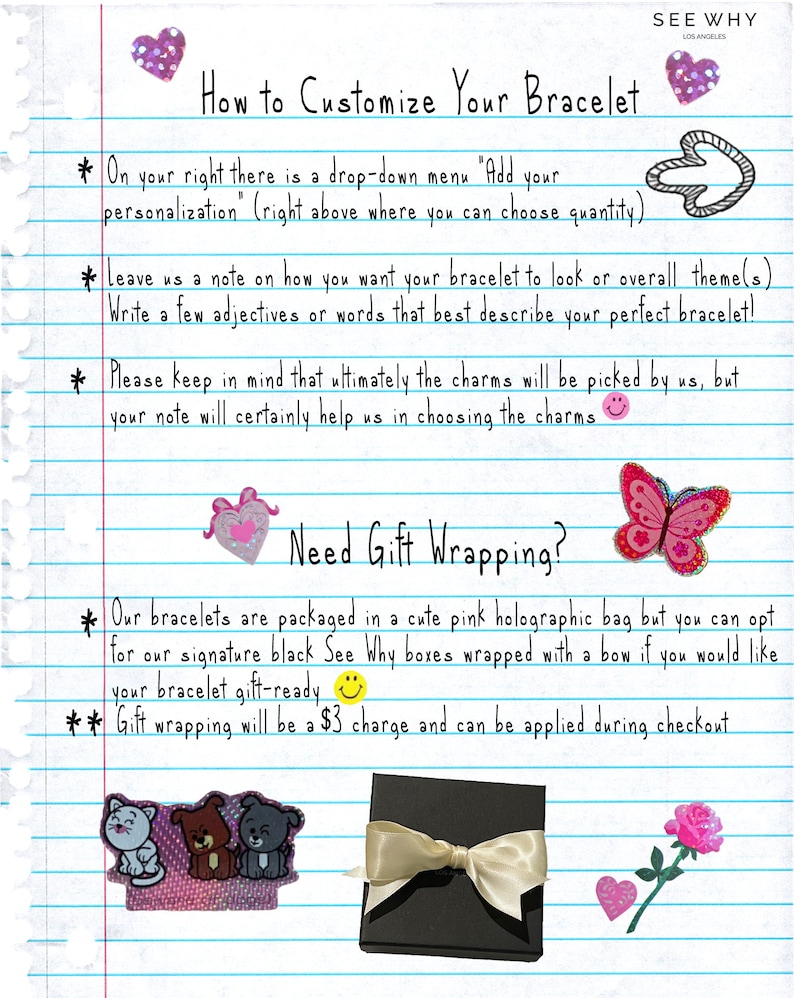 SEE WHY
LOS ANGELES
How to Customize Your Bracelet
* On your right there is a drop-down menu "Add your
personalization" (right above where you can choose quantity)
* Leave us a note on how you want your bracelet to look or overall theme(s)
Write a few adjectives or words that best describe your perfect bracelet!
* Please keep in mind that ultimately the charms will be picked by us, but
your note will certainly help us in choosing the charms
Need Gift Wrapping?
* Our bracelets are packaged in a cute pink holographic bag but you can opt
for our signature black See Why boxes wrapped with a bow if you would like
your bracelet gift-ready
** Gift wrapping will be a $3 charge and can be applied during checkout
LOS ANGELES